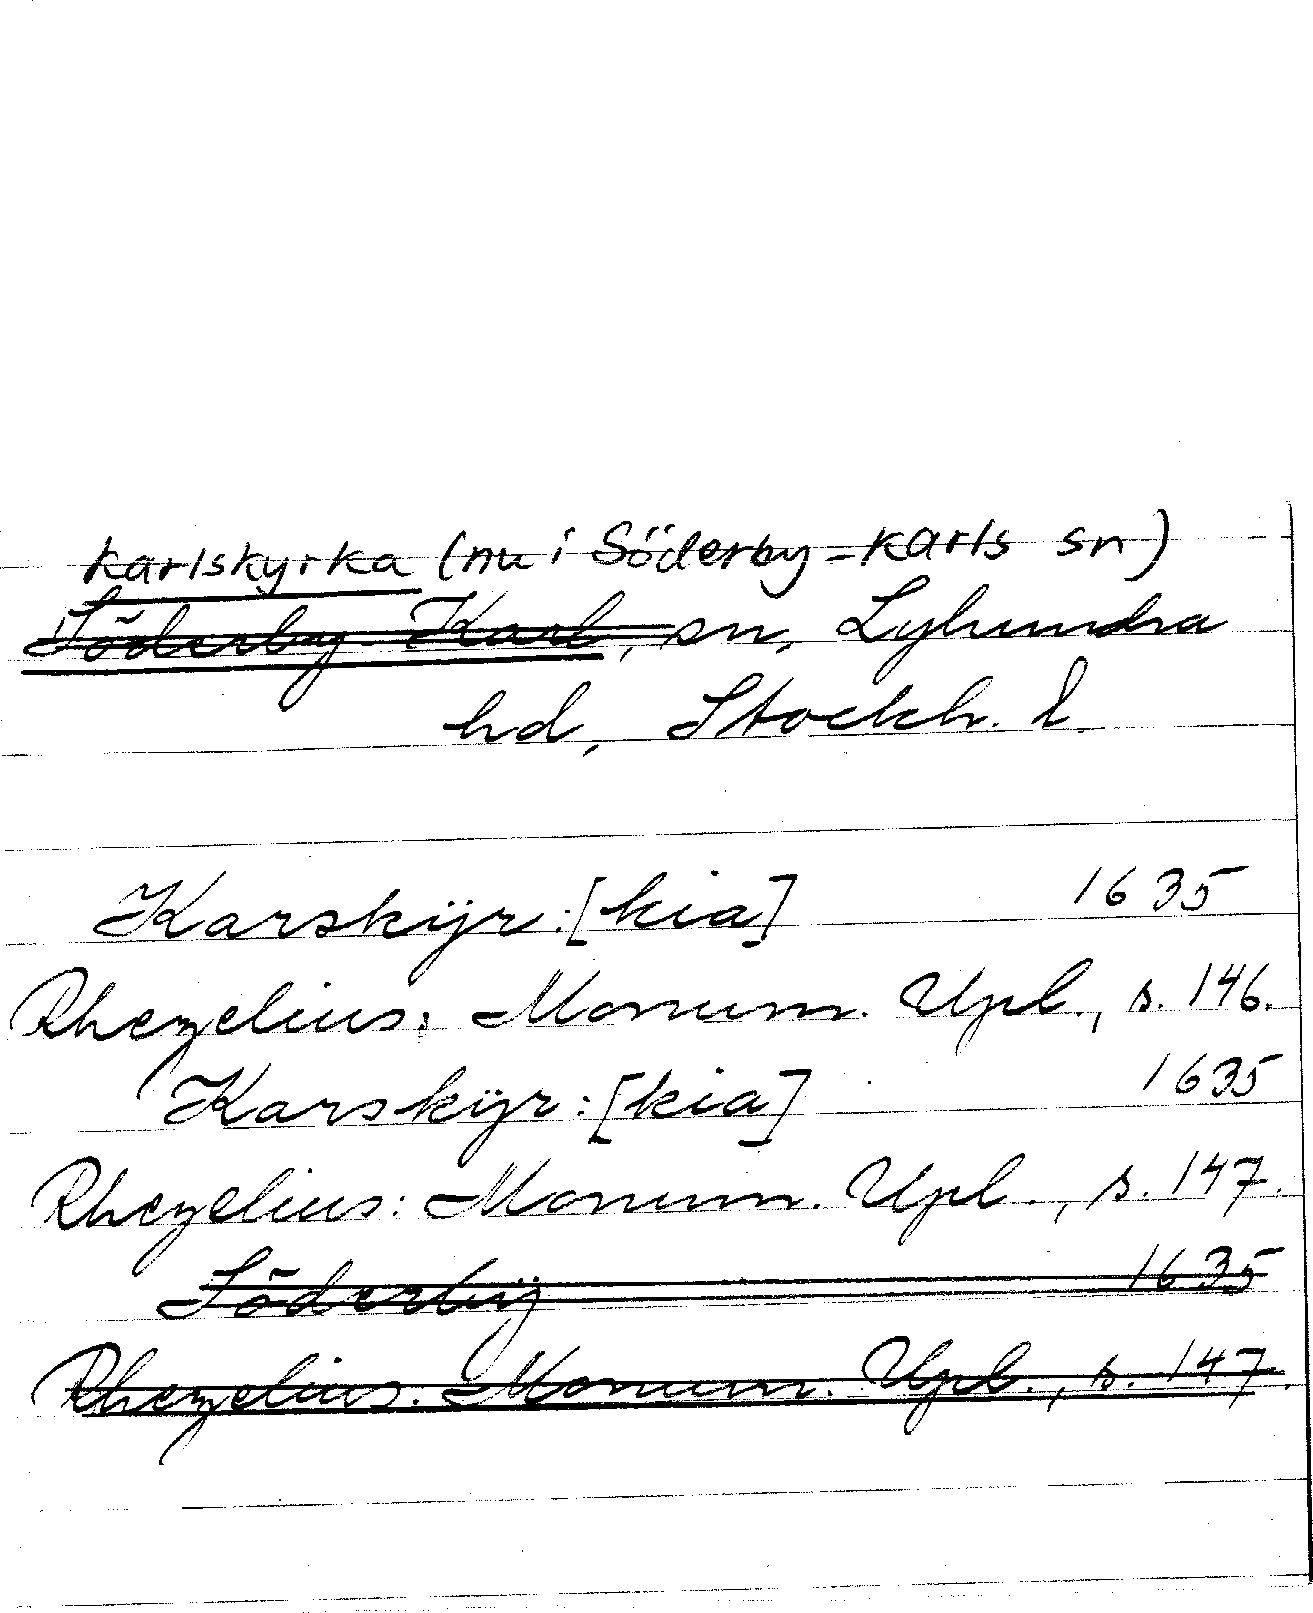 Karlskyrka (nu i Söderby-Karls sn)
Söderby Karl, sn, Lyhundra
hd, Stockh. l.
Karskÿr:[kia] 1635
Rhezelius: Monum. Upl., s. 146.
Karskÿr:[kia] 1635
Rhezelius: Monum. Upl., s. 147.
Söderbÿ 1635
Rhezelius. Monum. Upl., s. 147.